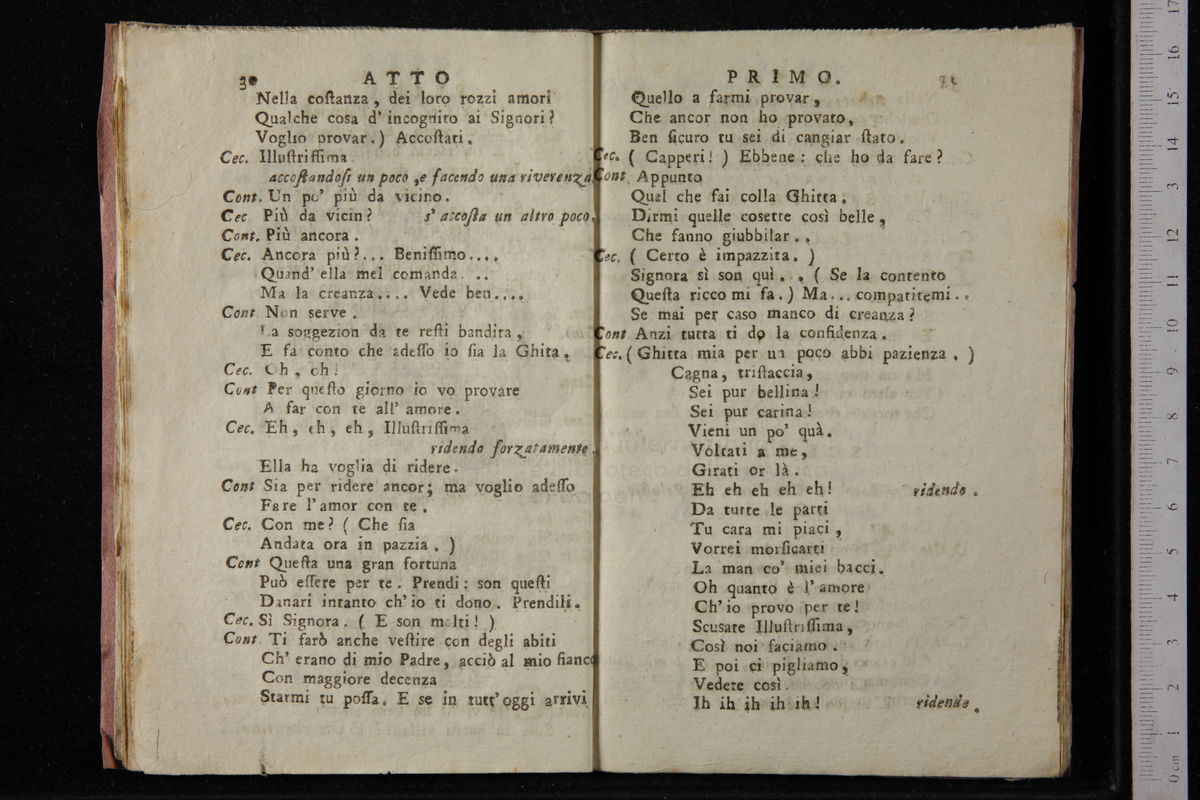 30 ATTO
Nella coſtanza, dei loro rozzi amori
Qualche cosa d' incognito ai Signori?
Voglio provar.) Accoſtati.
Cec. Illuſtriſſima
accoſtandoſi un poco, e facendo una riverenza
Cont. Un po' più da vicino.
Cec Più da vicin? s' accoſta un altro poco.
Cont. Più ancora.
Cec. Ancora più?... Beniſſimo....
Quand' ella mel comanda...
Ma la creanza.... Vede ben....
Cont Non serve.
La soggezion da te reſti bandita,
E fa conto che adeſſo io ſia la Ghita.
Cec. Oh, oh!
Cont Per queſto giorno io vo provare
A far con te all' amore.
Cec. Eh, eh, eh, Illuſtriſſima
ridendo forzatamente.
Ella ha voglia di ridere.
Cont Sia per ridere ancor; ma voglio adeſſo
Fare l'amor con te.
Cec. Con me? ( Che ſia
Andata ora in pazzia. )
Cont Queſta una gran fortuna
Può eſſere per te. Prendi: son queſti
Danari intanto ch'io ti dono. Prendili.
Cec. Sì Signora. ( E son molti! )
Cont Ti farò anche veſtire con degli abiti
Ch' erano di mio Padre, acciò al mio fianco
Con maggiore decenza
Starmi tu poſſa. E se in tutt'oggi arrivi
PRIMO.
Quello a farmi provar,
Che ancor non ho provato,
Ben ſicuro tu sei di cangiar ſtato.
Cec. ( Capperi! ) Ebbene: che ho da fare?
Cont. Appunto
Quel che fai colla Ghitta.
Dirmi quelle cosette così belle,
Che fanno giubbilar..
Cec. ( Certo è impazzita. )
Signora sì son quì.. ( Se la contento
Queſta ricco mi fa.) Ma... compatitemi..
Se mai per caso manco di creanza?
Cont Anzi tutta ti do la confidenza.
Cec. ( Ghitta mia per un poco abbi pazienza. )
Cagna, triſtaccia,
Sei pur bellina!
Sei pur carina!
Vieni un po' quà.
Voltati a me,
Girati or là.
Eh eh eh eh eh! ridendo.
Da tutte le parti
Tu cara mi piaci,
Vorrei morſicarti
La man co' miei bacci.
Oh quanto è l'amore
Ch'io provo per te!
Scusate Illuſtriſſima,
Così noi faciamo.
E poi ci pigliamo,
Vedete così.
Ih ih ih ih ih! ridendo.